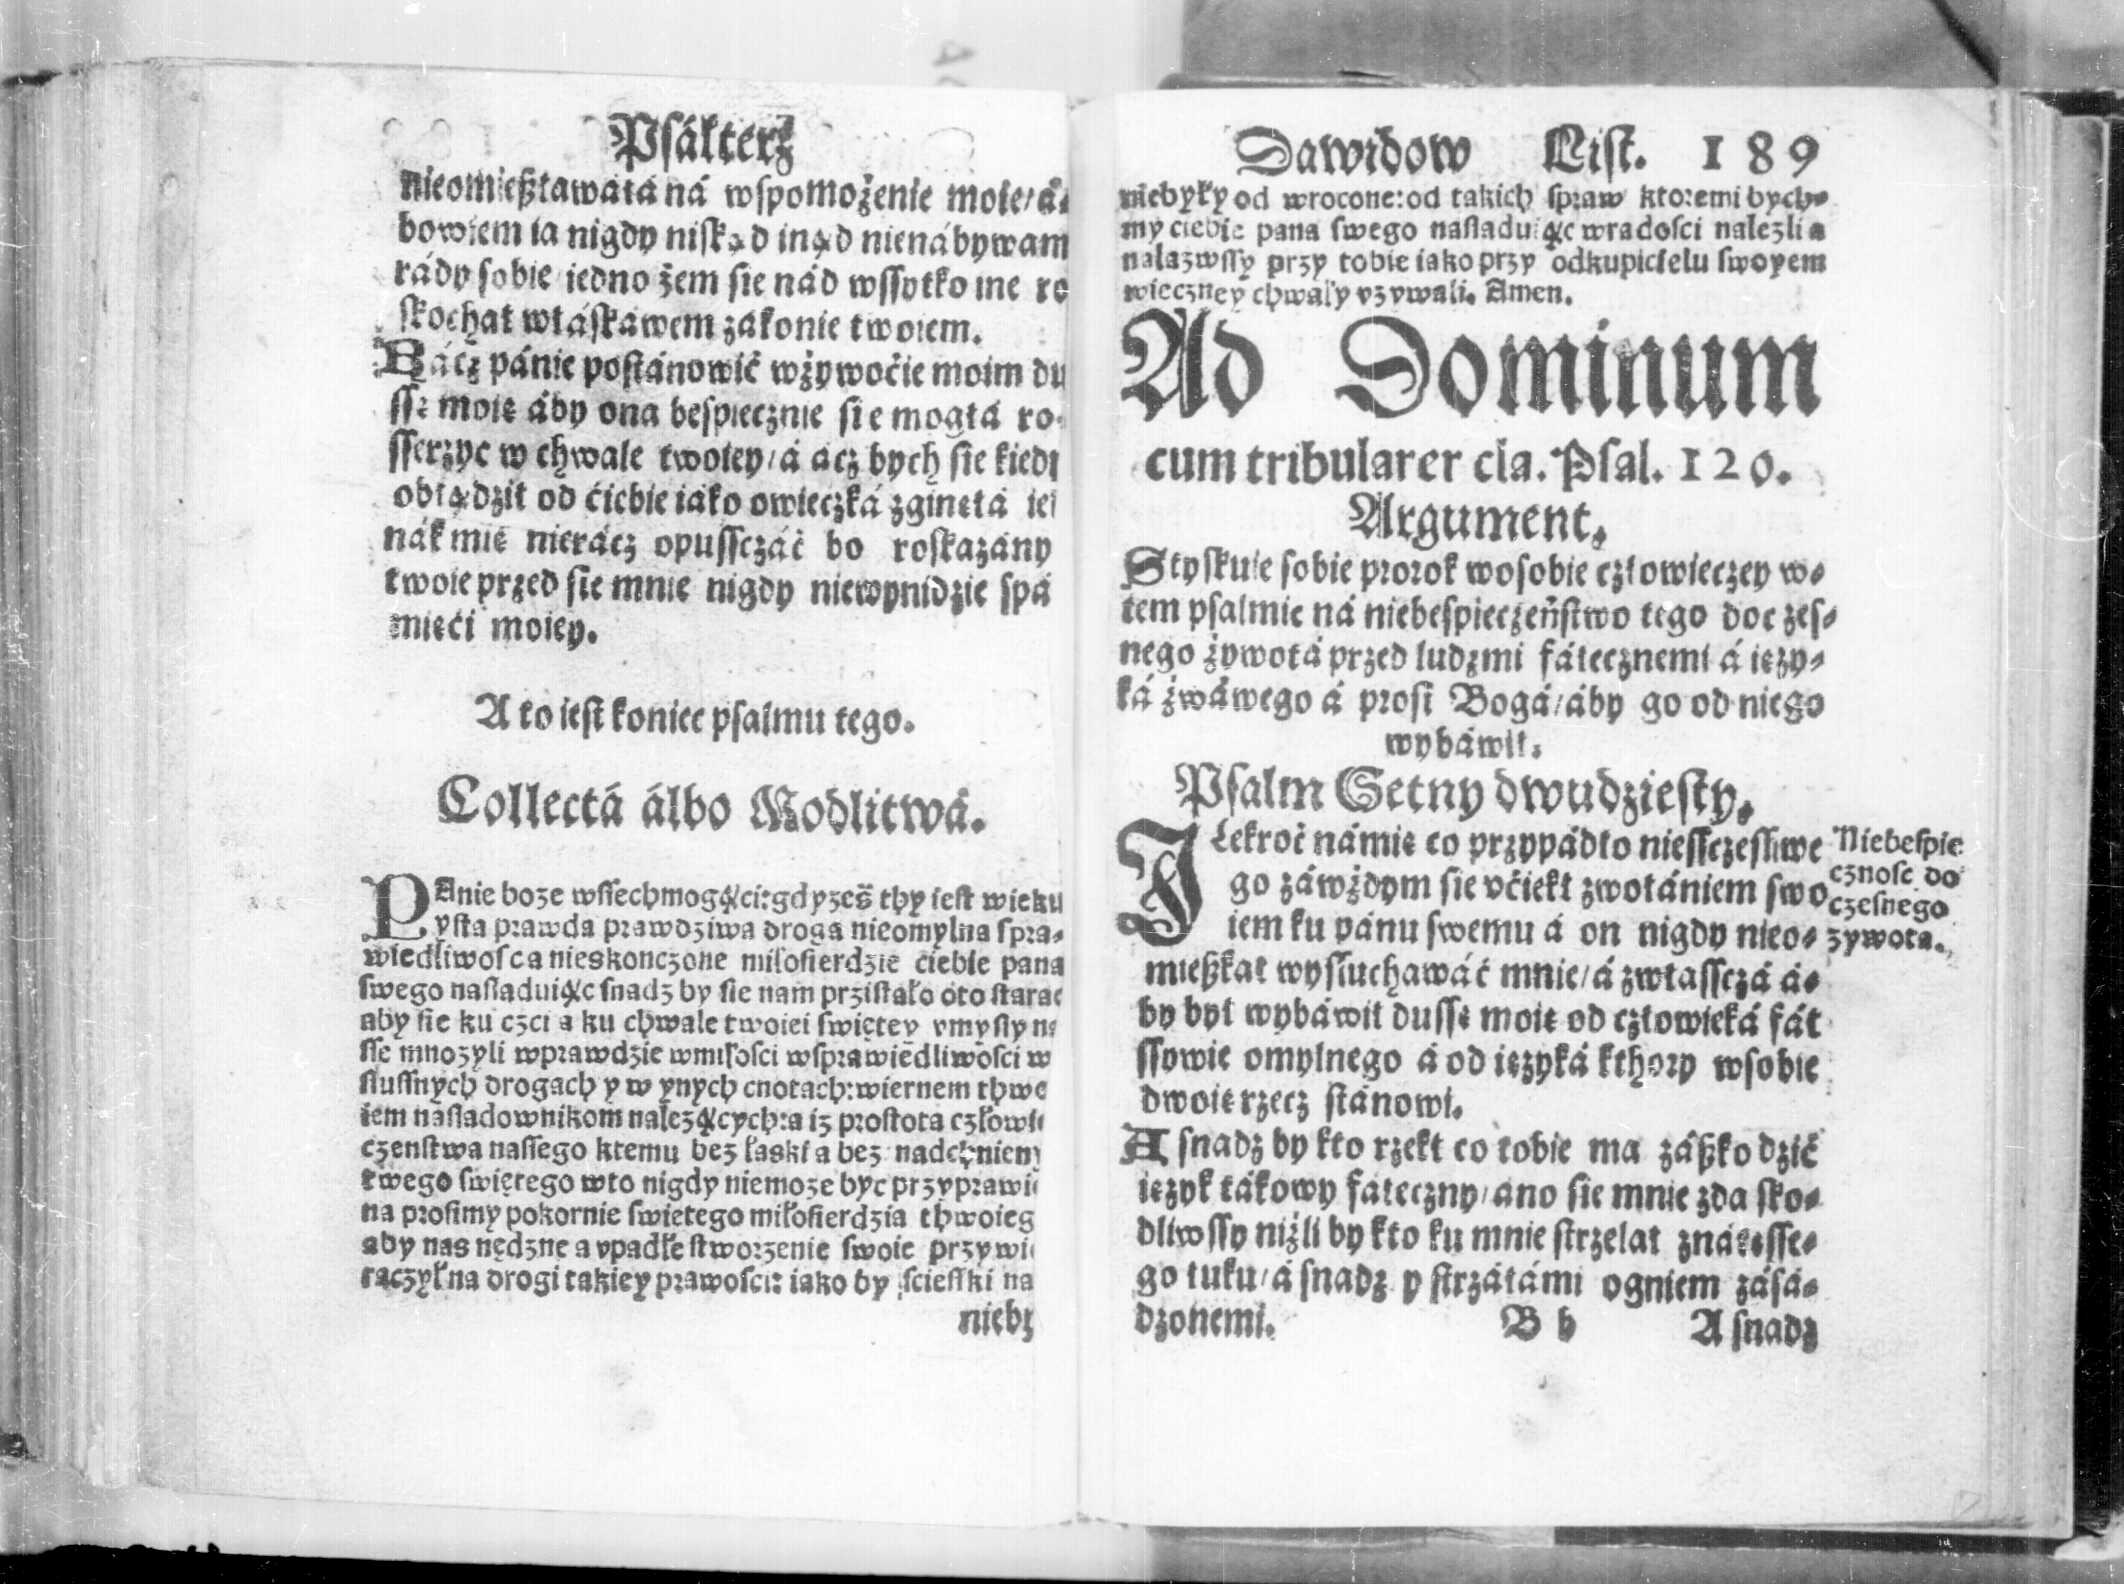 Psałterz
nieomießkawáłá ná wspomożenie moie/á⸗
bowiem ia nigdy niskąd inąd nienábywam
rády sobie iedno żem sie nád wssytko ine ro
skochał włáskáwem zakonie twoiem.
Rácz pánie postánowić wżywoćie moim du
sſę moię áby ona bespiecznie sie mogłá ro⸗
sſerzyc w chwale twoiey/á acz bych sie kiedy
obłądził od ćiebie iáko owieczká zginęłá
nák mię nierácz opusſczáć bo roskazány
twoie przed sie mnie nigdy niewynidzie spá
mięći moiey.
A to iest koniec psalmu tego.
Collectá álbo Modlitwá.
PAnie boze wsſechmogąci:gdyzeš thy iest wieku
ysta prawda prawdziwa droga nieomylna spra⸗
wiedliwosca nieskonczone miłosierdzie ciebie pana
swego nasladuiąc snadz by sie nam przistało oto starac
aby sie ku czci a ku chwale twoiei swiętey vmysly na
sſe mnozyli wprawdzie wmiłosci wsprawiedliwosci w
slusſnych drogach y w ynych cnotach:wiernem thwo
iem nasladownikom nalezących:a iz prostota człowie
czenstwa nasſego ktemu bez łaski a bez nadchnieny
twego swiętego wto nigdy niemoze byc przyprawio
na prosimy pokornie swiętego miłosierdzia thwoieg
aby nas nędzne a vpadłe stworzenie swoie przywie
raczył na drogi takiey prawosci: iako by sciesſki na
nieby
Dawidow List. 189
niebyły od wrocone:od takich spraw ktoremi bych⸗
my ciebie pana swego nasladuiąc wradosci nalezli a
nalazwsſy przy tobie iako przy odkupicielu swoyem
wieczney chwały vzywali. Amen.
Ad Dominum
cum tribularer cla. Psal. 120.
Argument.
Styskuie sobie prorok wosobie człowieczey w⸗
tem psalmie ná niebespieczeństwo tego docżes⸗
nego żywotá przed ludzmi fálecznemi á ięzy⸗
ká żwáwego á prosi Bogá/áby go od niego
wybáwił.
Psalm Setny dwudziesty.
ILekroć námię co przypádło niesſczesliwe
go záwżdym sie vćiekł zwołániem swo
iem ku pánu swemu á on nigdy nieo⸗
mießkał wysłuchawáć mnie/á zwłasſczá á⸗
by był wybáwił dusſę moię od człowieká fał
sſywie omylnego á od ięzyká kthory wsobie
dwoię rzecz stánowi.
Niebespie
cznosc do
czesnego
zywota.
A snadz by kto rzekł co tobie ma záßkodzić
ięzyk tákowy fałeczny/ano sie mnie zda sko⸗
dliwsſy niżli by kto ku mnie strzelał známesſe⸗
go łuku/á snadz y strzáłámi ogniem zásá⸗
dzonemi.
B b A snadz